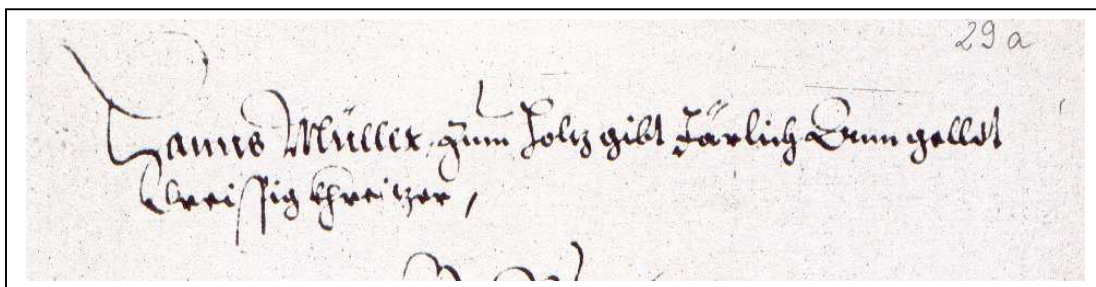 29 a
Hanns Müller zum Holtz gibt Järlich Inn gelldt
dreissig khreitzer,